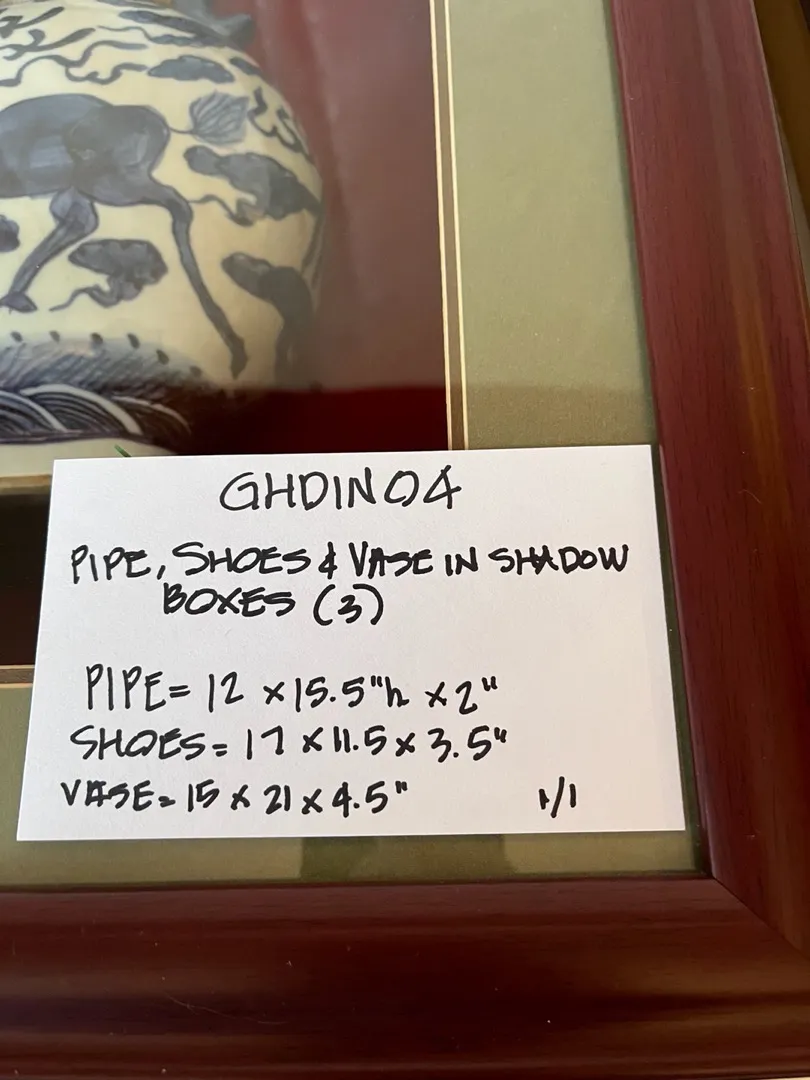 GHDIN04
PIPE, SHOES & VASE IN SHADOW
BOXES (3)
PIPE= 12 x 15.5"h x 2"
SHOES= 17 x 11.5 x 3.5"
VASE= 15 x 21 x 4.5"
1/1